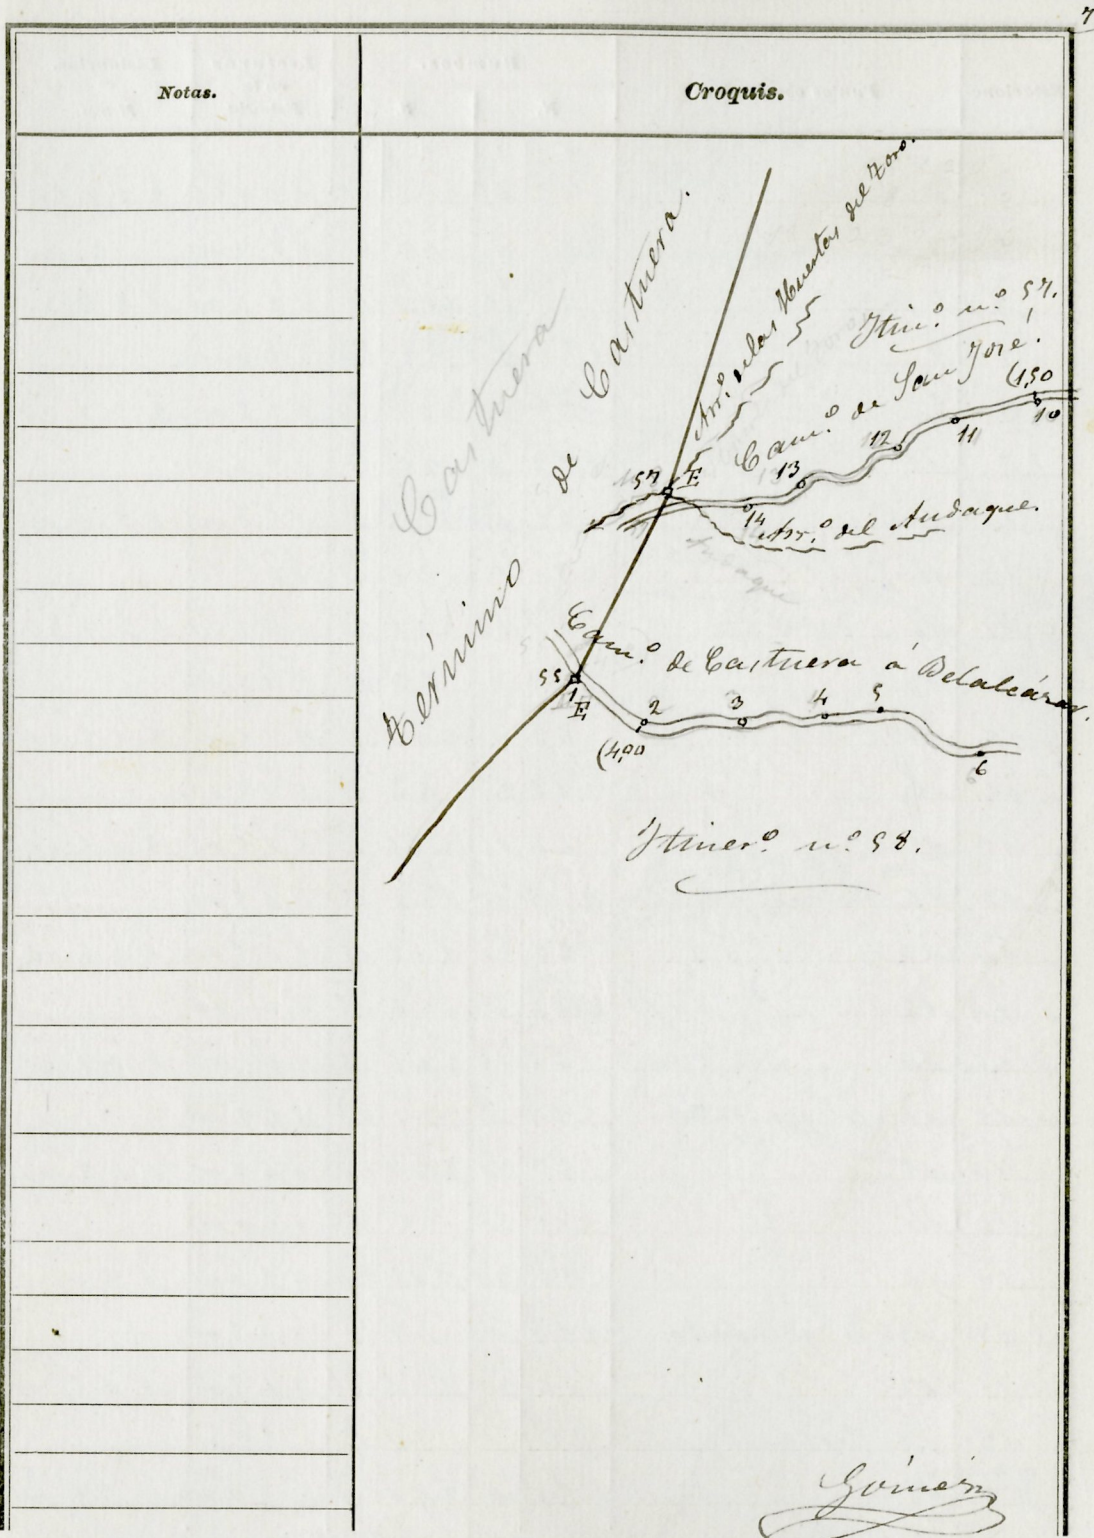 7
Notas.
Croquis.
Término de Castuera.
Castuera
Arr.º de las Huertas del Toro.
Itin.º n.º 57.
Cam.º de San José.
(1,50
10
11
12
13
14
57 E
Arr.º del Andaque.
Andaque
Cam.º de Castuera á Belalcázar.
55
1
E
2
3
4
5
6
(4,00
Itiner.º n.º 58.
Gómez